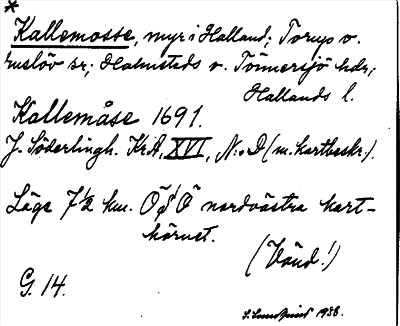 *
Kallemosse, myr i Halland; Torup o.
snslöv sr; Halmstads o. Tönnersjö hdr;
Hallands l.
Kallemåse 1691.
J. Söderlingh. KrA, XVI, N:o D (m. kartbeskr.).
Läge 7½ km. Ö S Ö nordvästra kart-
hörnet.
(Vänd!)
G. 14.
1938.